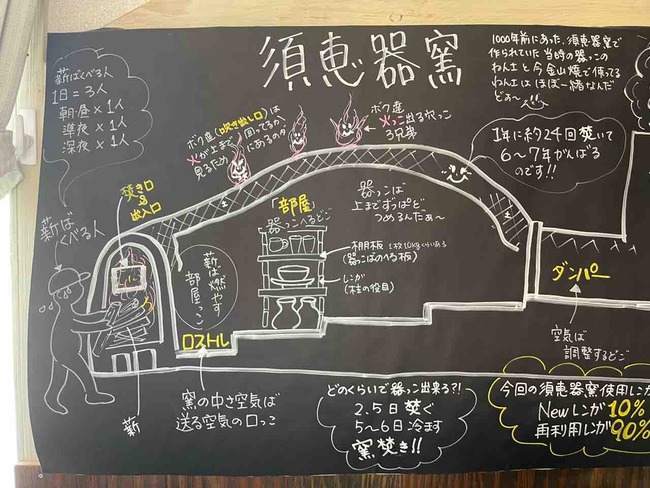 須恵器窯
1000年前にあった、須恵器窯で
作られていた当時の器っこの
わん土と今金山焼で使ってる
わん土は ほぼ一緒なんだ
どぁ〜!!
薪ばくべる人
1日=3人
朝昼×1人
準夜×1人
深夜×1人
焚き口
&
出入口
薪ば
くべる人
ボク達(吹き出し口)は
火が上まで回ってるか、
見るために
あるのダ
ボク達
火っこ出る穴っこ
3兄弟
1年に約24回焚いて
6〜7年がんばる
のです!!
「部屋」
器っこへるどご
器っこば
上まですっぱど
つめるんたぁ〜
棚板 1枚10kgくらいある
(器っこばのへる板)
レンガ
(柱の役目)
薪ば燃やす
部屋っこ
ロストル
窯の中さ空気ば
送る空気の口っこ
薪
ダンパー
空気ば
調整するどこ
どのくらいで器っこ出来る?!
2.5日焚ぐ
5〜6日冷ます
窯焚き!!
今回の須恵器窯使用レンガ
Newレンガ10%
再利用レンガ90%